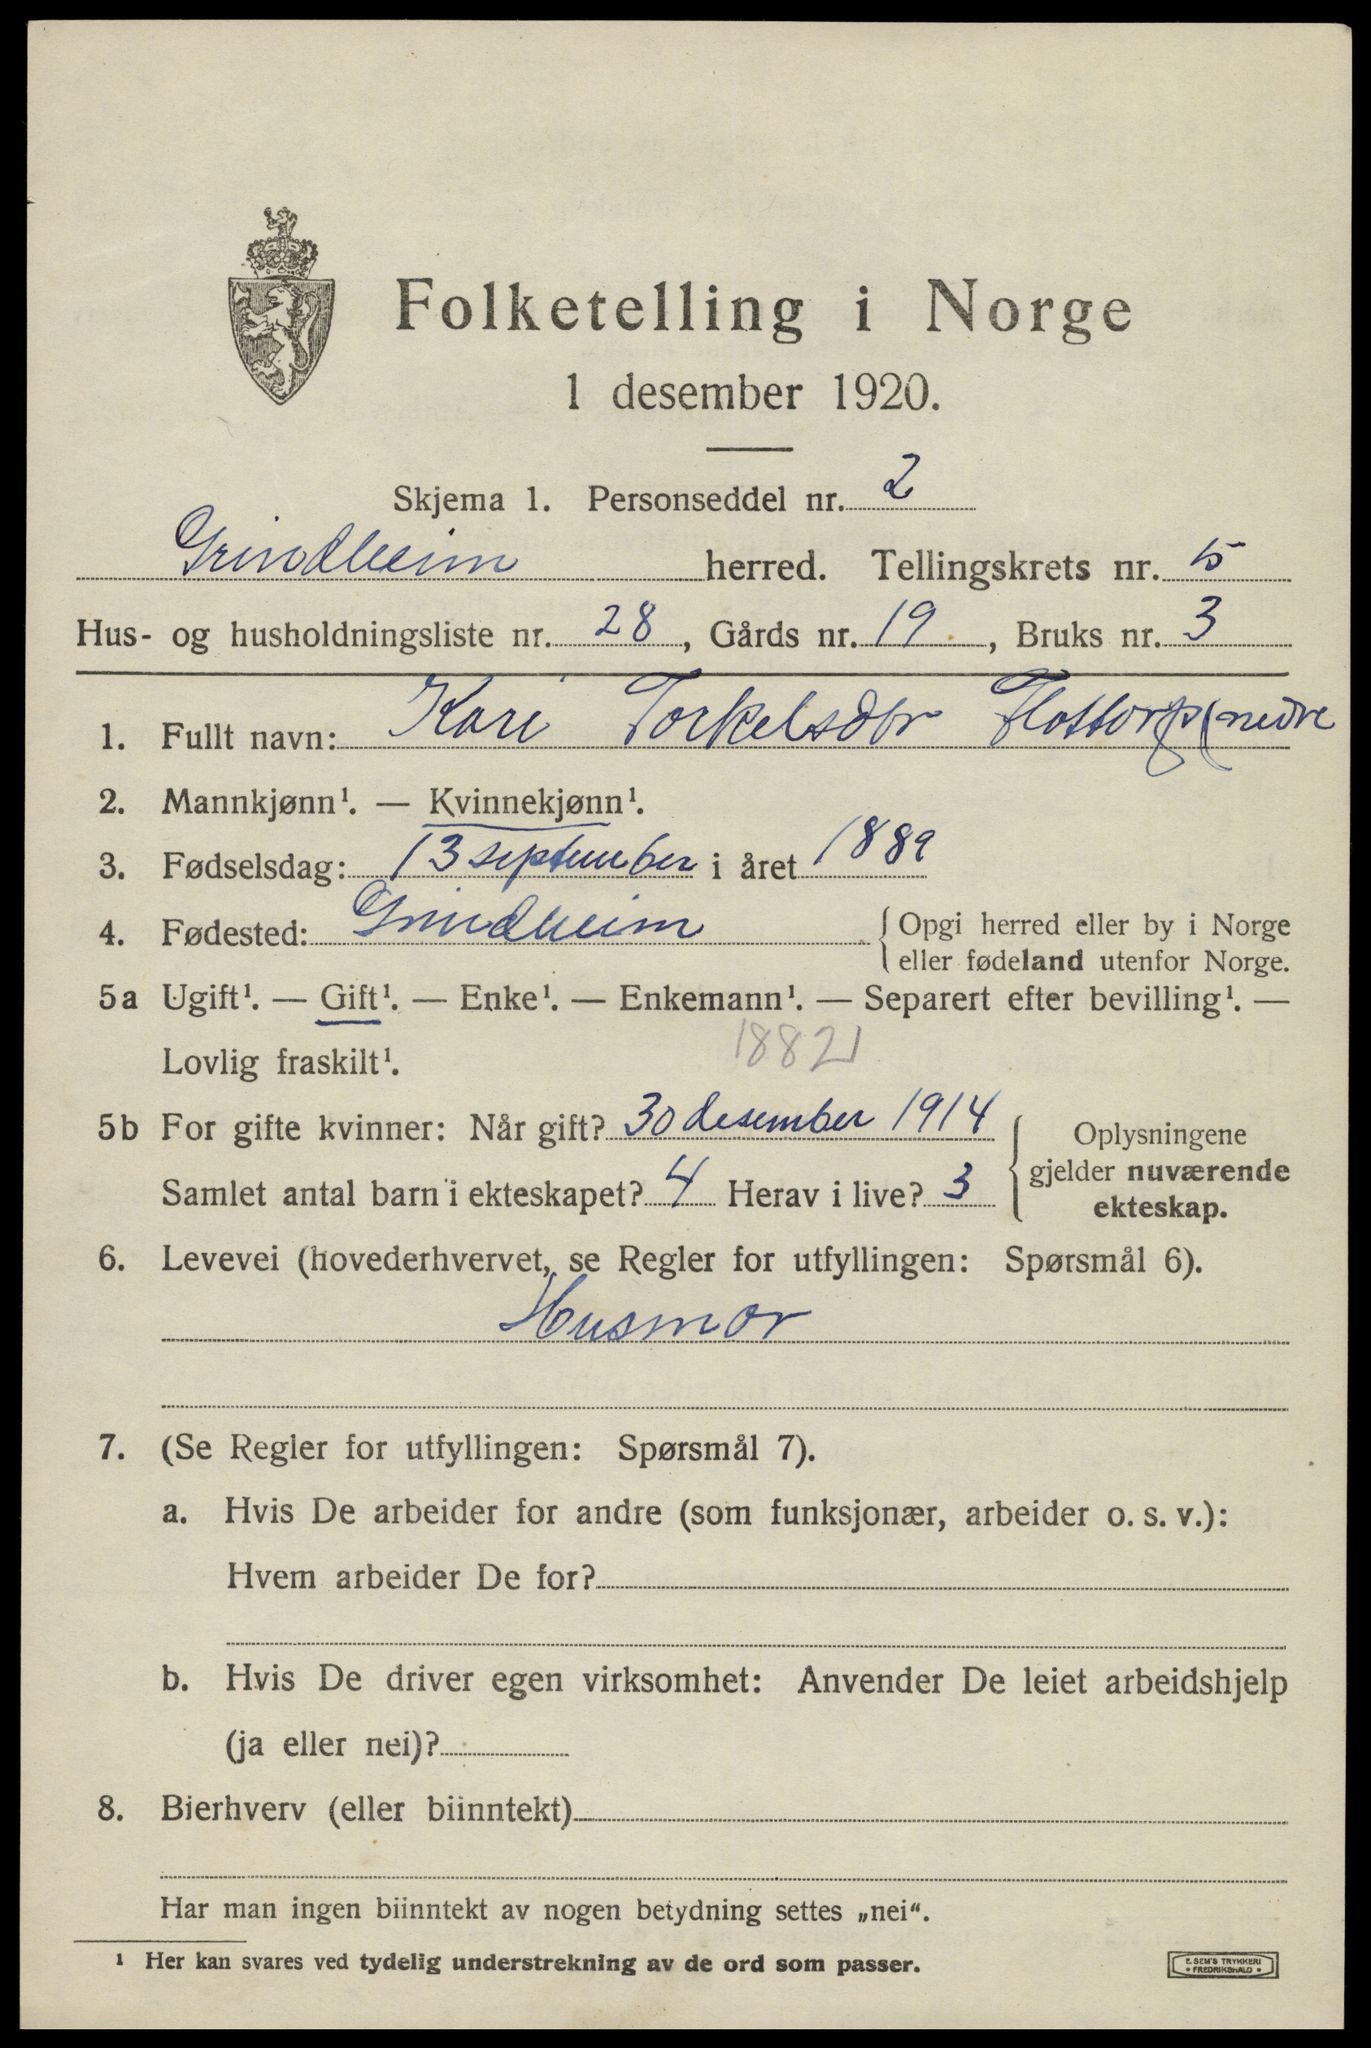 Folketelling i Norge
1 desember 1920.
Skjema 1. Personseddel nr. 2
Grindheim herred. Tellingskrets nr. 5
Hus- og husholdningsliste nr. 28, Gårds nr. 19, Bruks nr. 3
1. Fullt navn: Kari Torkelsdtr Flottorp (nedre
2. Mannkjønn¹. — Kvinnekjønn¹.
3. Fødselsdag: 13 september i året 1889
4. Fødested: Grindheim {Opgi herred eller by i Norge
eller fødeland utenfor Norge.
5a Ugift¹. — Gift¹. — Enke¹. — Enkemann¹. — Separert efter bevilling¹. —
Lovlig fraskilt¹. 1882
5b For gifte kvinner: Når gift? 30 desember 1914 { Oplysningene
Samlet antal barn i ekteskapet? 4 Herav i live? 3 gjelder nuværende
ekteskap.
6. Levevei (hovederhvervet, se Regler for utfyllingen: Spørsmål 6).
Husmor
7. (Se Regler for utfyllingen: Spørsmål 7).
a. Hvis De arbeider for andre (som funksjonær, arbeider o. s. v.):
Hvem arbeider De for?
b. Hvis De driver egen virksomhet: Anvender De leiet arbeidshjelp
(ja eller nei)?
8. Bierhverv (eller biinntekt)
Har man ingen biinntekt av nogen betydning settes „nei“.
¹ Her kan svares ved tydelig understrekning av de ord som passer.
E. SEM'S TRYKKERI
• FREDRIKSHALD •